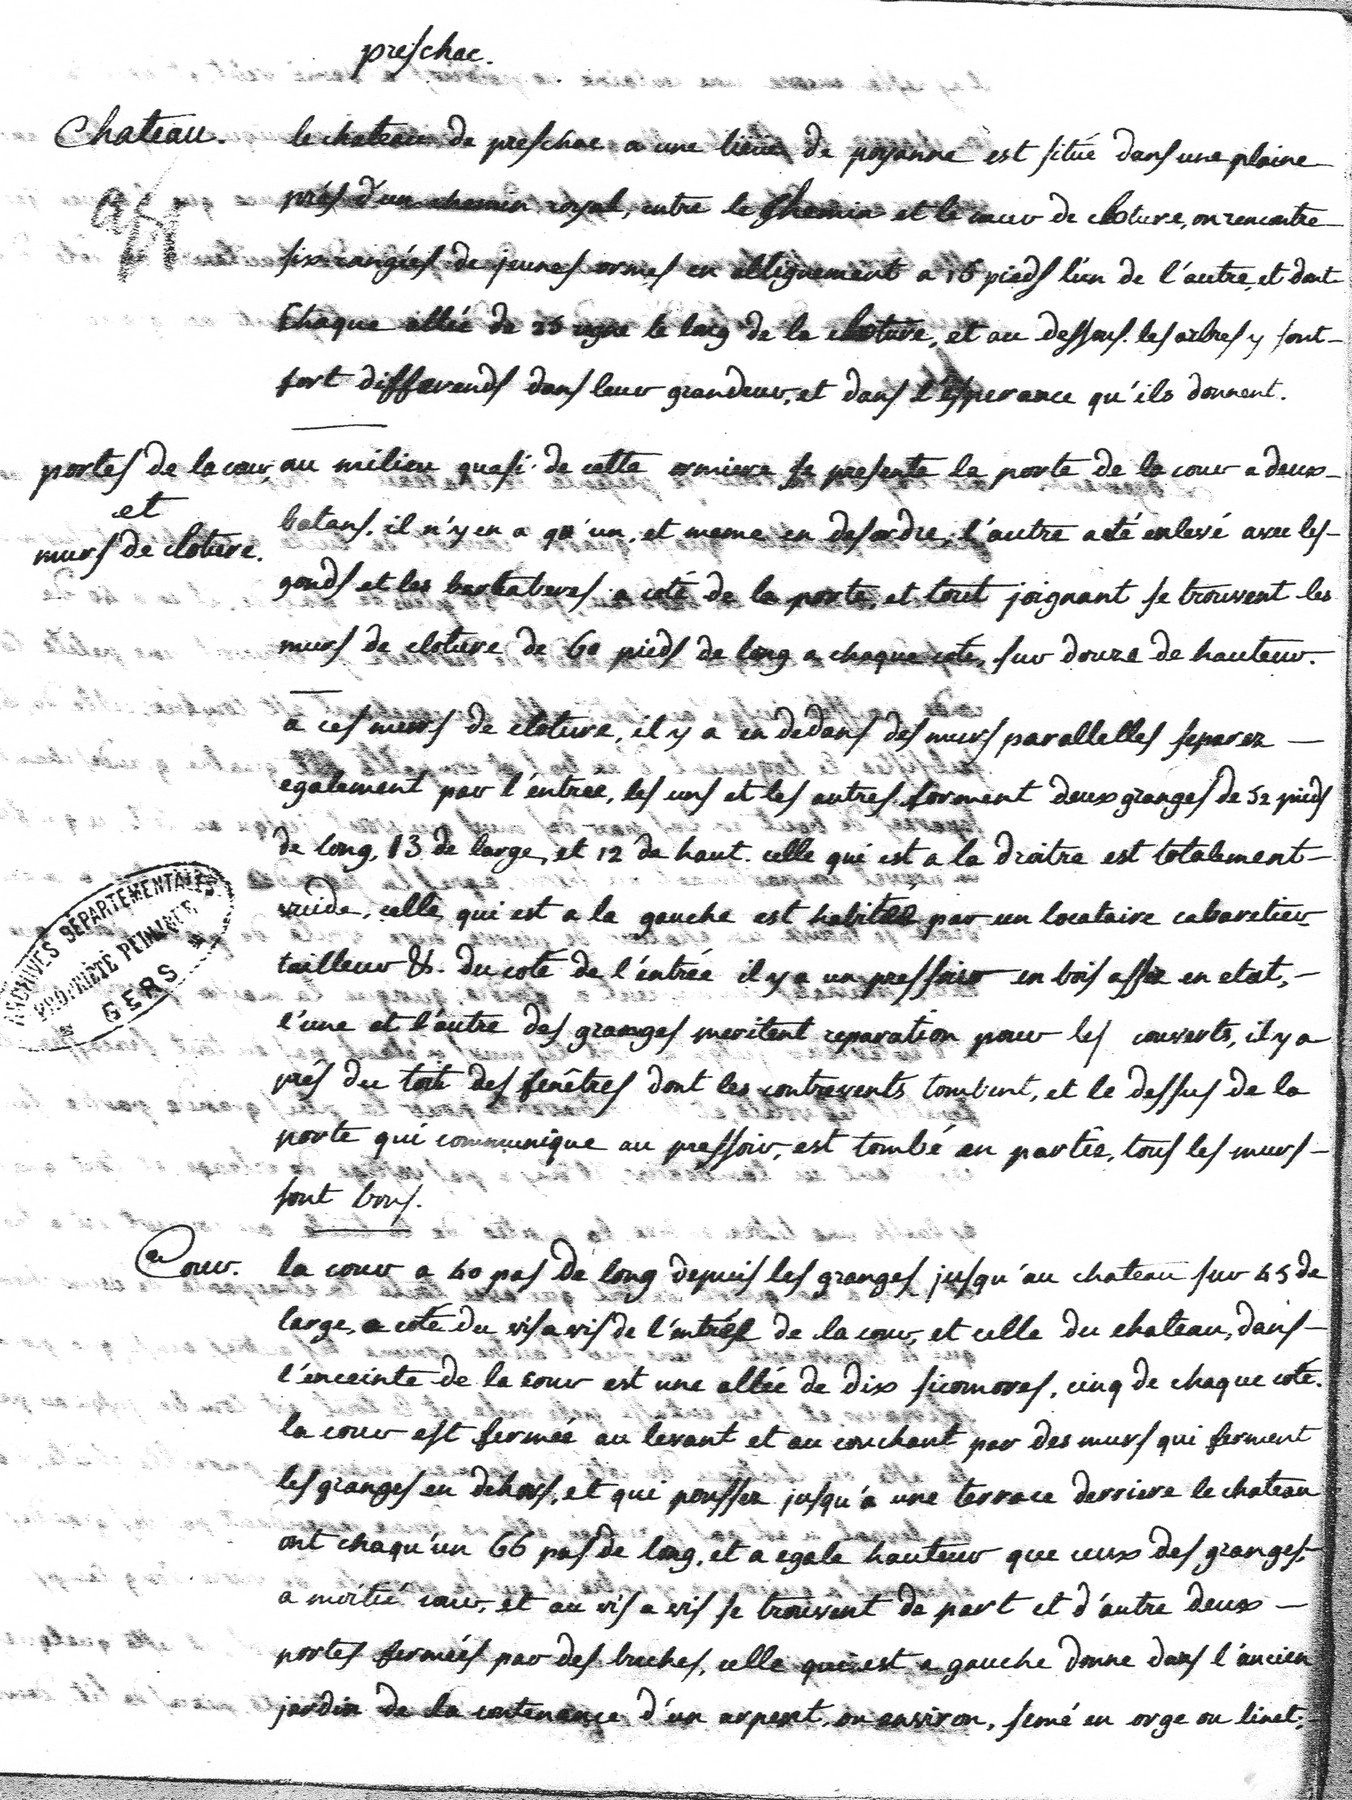 preschac.
Chateau. le chateau de preschac a une lieüe de poyanne est situé dans une plaine
prés d'un chemin royal, entre le chemin et le mur de cloture, on rencontre
six rangées de jeunes ormes en allignement a 16 pieds l'un de l'autre, et dont
chaque allée de 25 regne le long de la cloture, et au dessous. les arbres y sont
fort differends dans leur grandeur, et dans l'esperance qu'ils donnent.
portes de la cour, au milieu quasi de cette ormiere se presente la porte de la cour a deux
et
murs de cloture.
batans. il n'y en a qu'un, et meme en desordre, l'autre a eté enlevé avec les
gonds et les a coté de la porte, et tout joignant se trouvent les
murs de cloture de 60 pieds de long a chaque coté, sur douze de hauteur.
a ces murs de cloture, il y a en dedans des murs parallelles separez
egalement par l'entrée, les uns et les autres forment deux granges de 52 pieds
de long, 13 de large, et 12 de haut. celle qui est a la droitre est totalement
vuide, celle qui est a la gauche est habitée par un locataire cabaretier
tailleur &. du coté de l'éntrée il y a un pressoir en bois assez en etat,
l'une et l'autre des granges meritent reparation pour les couverts, il y a
prés du toit des fenêtres dont les contrevents tombent, et le dessus de la
porte qui communique au pressoir, est tombé en partie, tous les murs
sont bons.
ARCHIVES DÉPARTEMENTALES
PROPRIÉTÉ
GERS
Cour. la cour a 40 pas de long depuis les granges jusqu'au chateau sur 45 de
large, a coté du vis a vis de l'entrée de la cour, et celle du chateau, dans
l'enceinte de la cour est une allée de dix sicomores, cinq de chaque coté.
la cour est fermée au levant et au couchant par des murs qui ferment
les granges en dehors, et qui poussez jusqu'a une terrace derriere le chateau
ont chaqu'un 66 pas de long, et a egale hauteur que ceux des granges,
a moitié cour, et au vis a vis se trouvent de part et d'autre deux
portes fermées par des buches, celle qui est a gauche donne dans l'ancien
jardin de la contenance d'un arpent, ou environ, semé en orge ou linet,